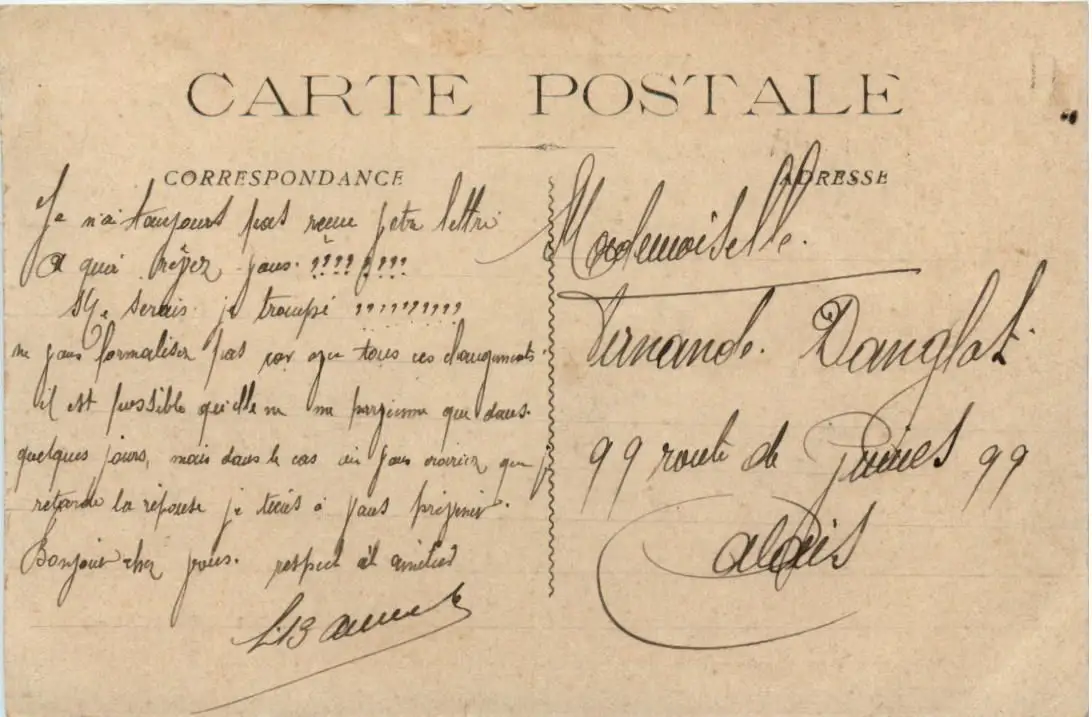 CARTE POSTALE
CORRESPONDANCE
ADRESSE
Je n'ai toujours pas reçue votre lettre
A quoi rêvez vous. ????????
Me serais je trompé ??????????
ne vous formaliser pas car avec tous ces changements
il est possible qu'elle ne me parvienne que dans
quelques jours, mais dans le cas où vous croiriez que je
retarde la réponse je tenais à vous prévenir.
Bonjour chez vous. respect et amitiés
Mademoiselle.
Fernande. Danglot
99 route de Guines 99
Calais